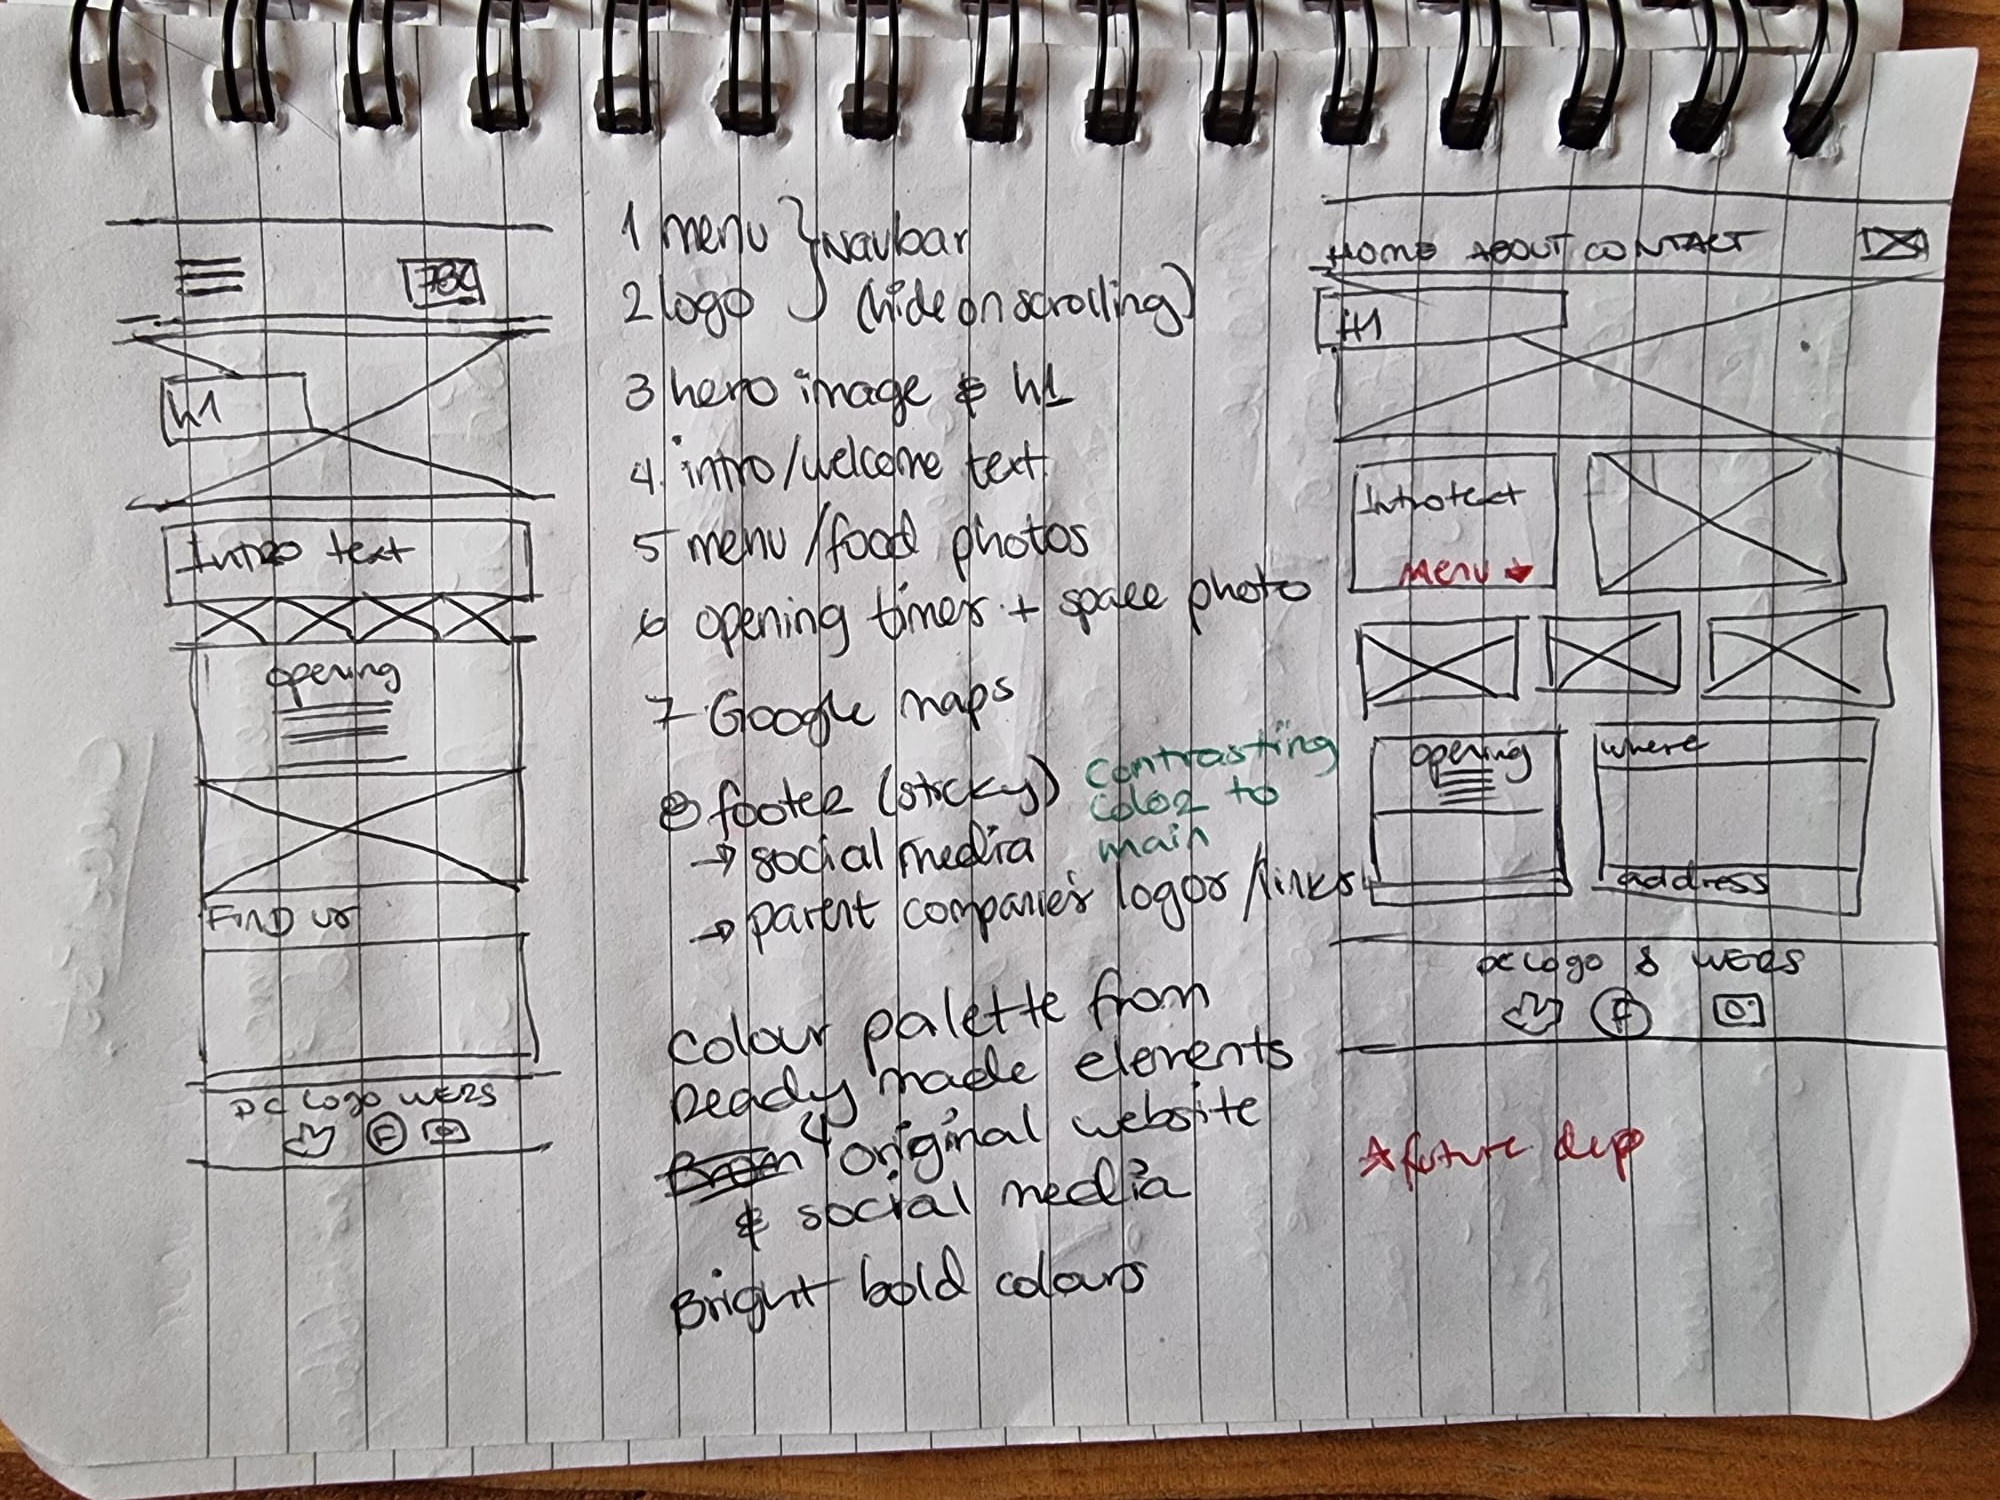 h1
Intro text
opening
FIND us
PC Logo WERS
F
1 menu } Navbar
2 logo (hide on scrolling)
3 hero image & h1
4. intro/welcome text
5 menu/food photos
6 opening times + space photo
7 Google maps
8 footer (sticky)
contrasting
color to
main
→ social media
→ parent companies logos/links
Colour palette from
Ready made elements
original website
& social media
Bright bold colours
HOME ABOUT CONTACT
H1
Intro text
Menu
opening
where
address
PC Logo & WERS
F
future dep